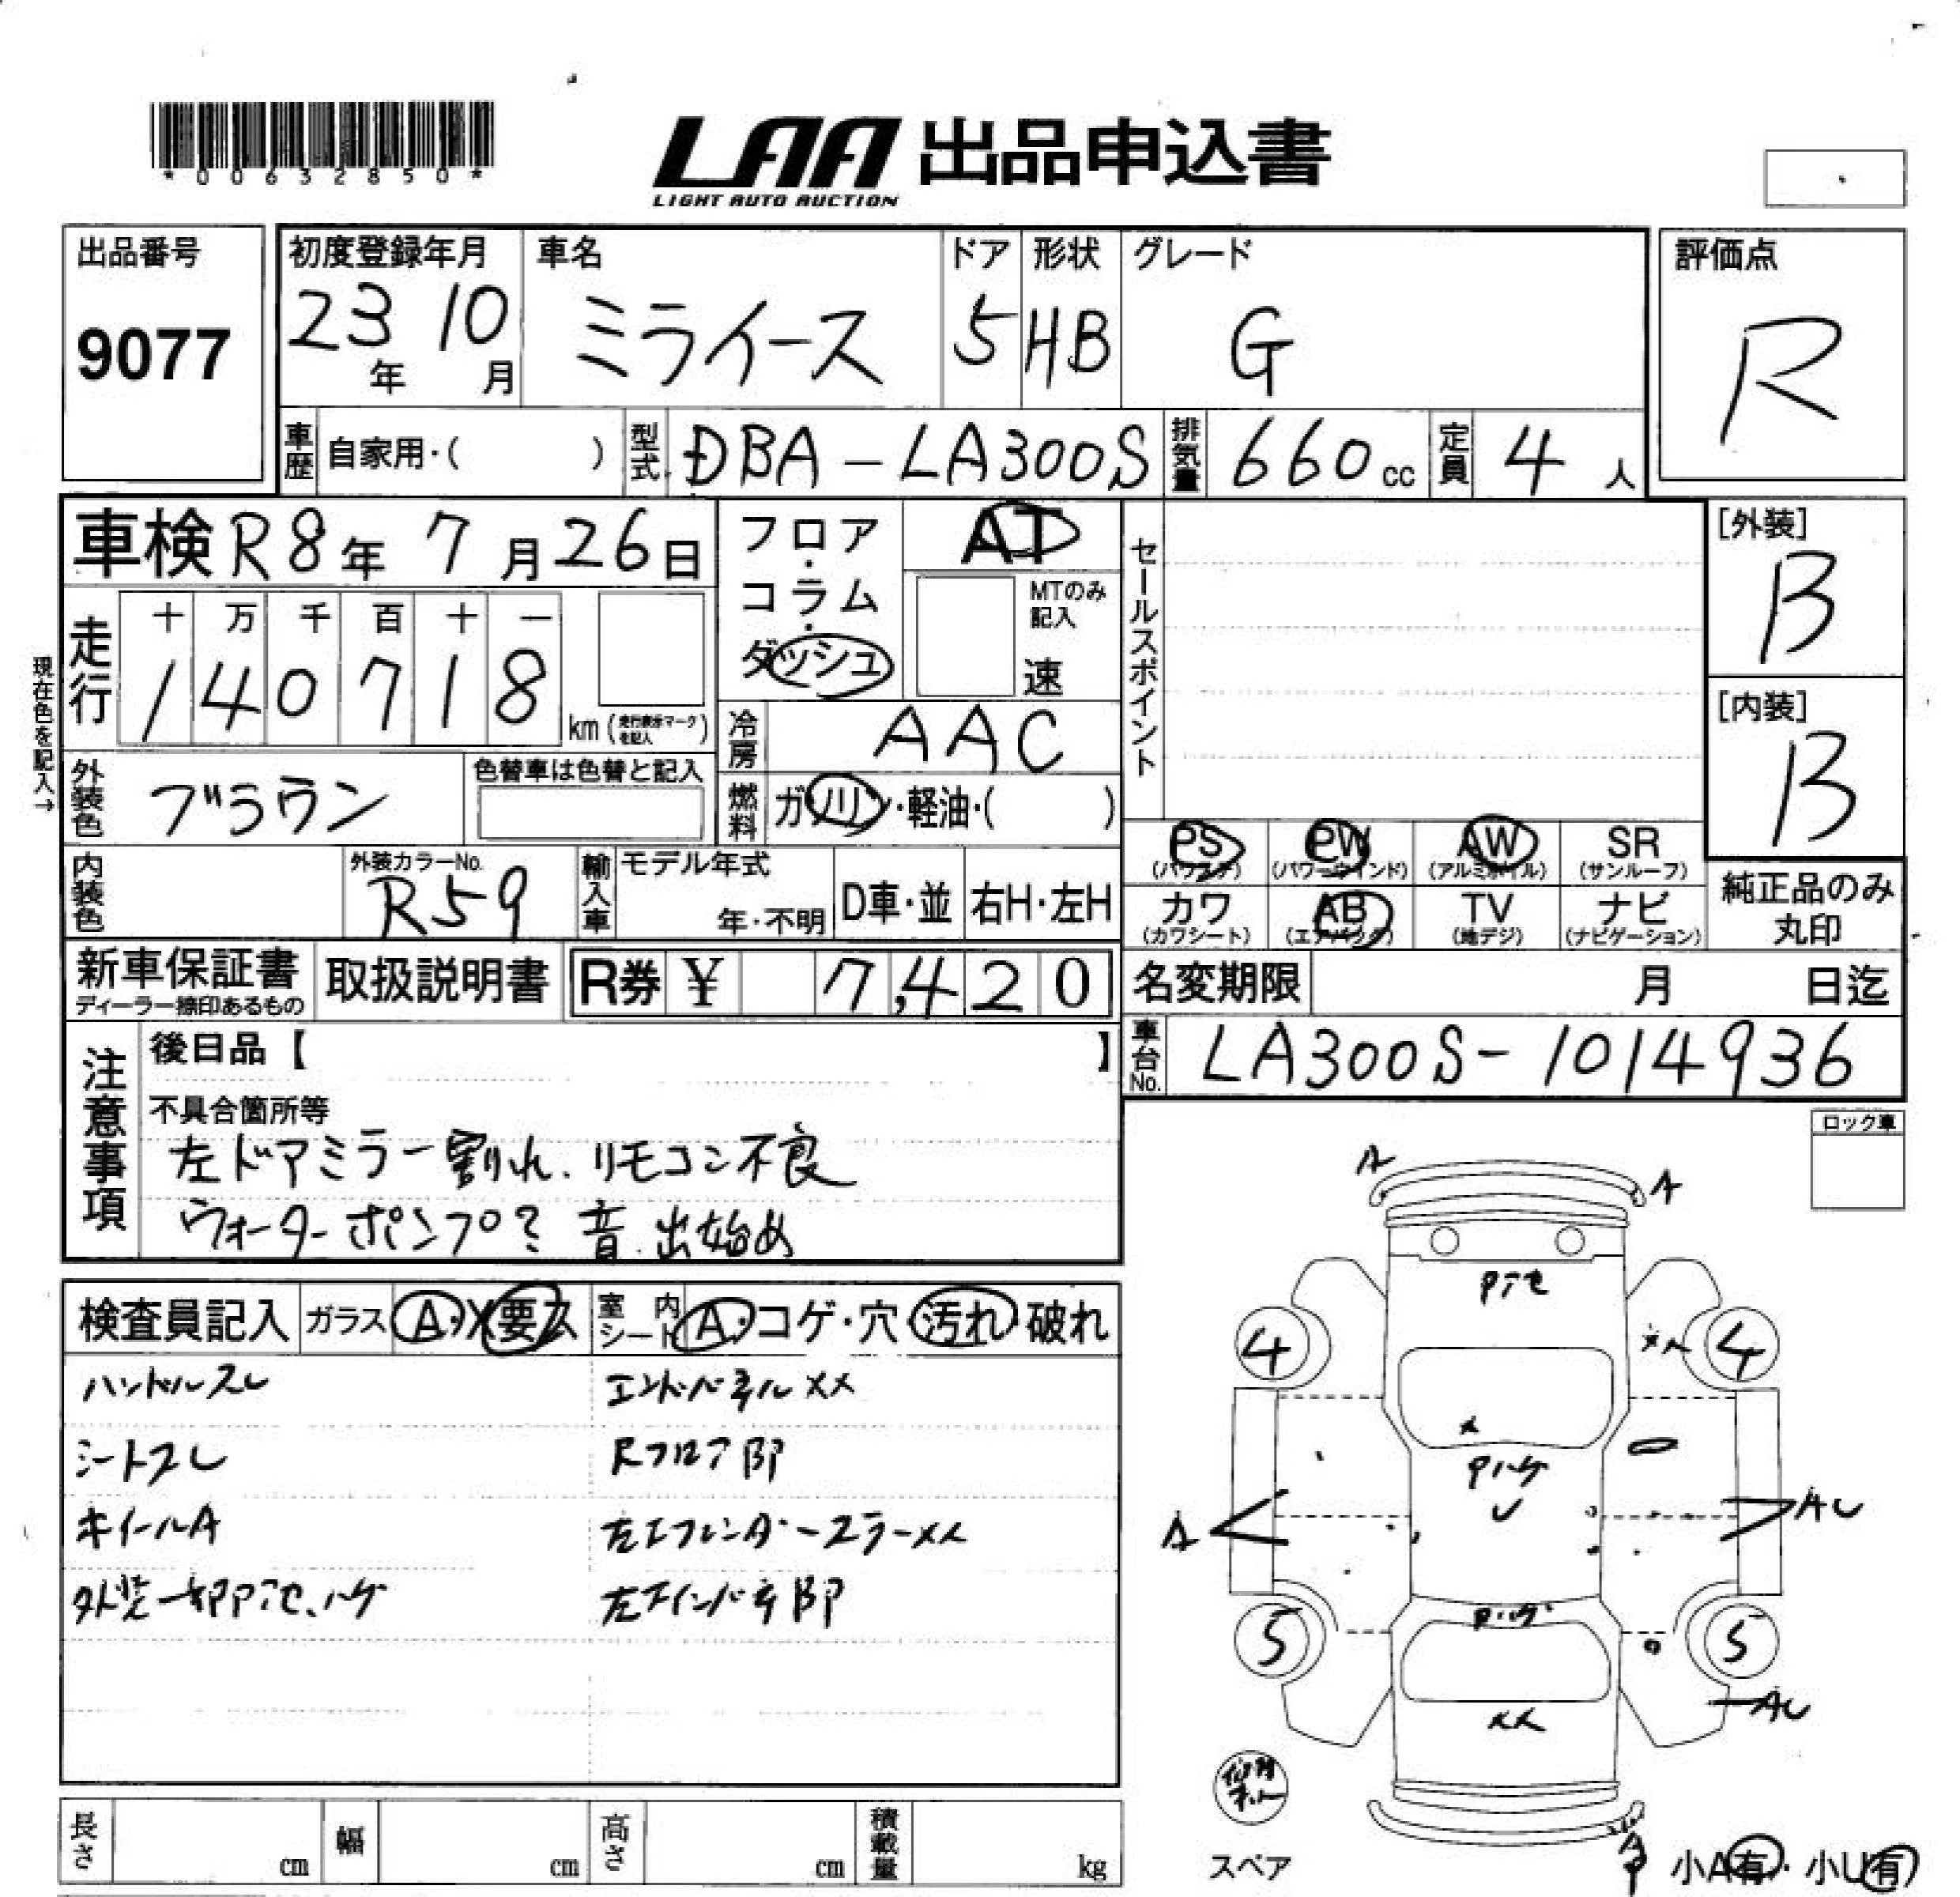 *00632850*
LAA 出品申込書
LIGHT AUTO AUCTION
出品番号
9077
初度登録年月
23年 10月
車名
ミライース
ドア
5
形状
HB
グレード
G
評価点
R
車歴 自家用・( )
型式 DBA-LA300S
排気量 660cc
定員 4人
車検 R8年 7月 26日
フロア・
コラム・
ダッシュ
AT
MTのみ記入
速
セールスポイント
[外装]
B
[内装]
B
現在色を記入→
走行
十 万 千 百 十 一
1 4 0 7 1 8
km (走行表示マークを記入)
冷房 AAC
外装色 ブラウン
色替車は色替と記入
燃料 ガソリン・軽油・( )
PS
(パワステ)
PW
(パワーウインド)
AW
(アルミホイル)
SR
(サンルーフ)
カワ
(カワシート)
AB
(エアバック)
TV
(地デジ)
ナビ
(ナビゲーション)
純正品のみ
丸印
内装色
外装カラーNo.
R59
輸入車
モデル年式
年・不明
D車・並
右H・左H
新車保証書
ディーラー捺印あるもの
取扱説明書
R券 ¥ 7,420
名変期限 月 日迄
車台No. LA300S-1014936
注意事項
後日品【 】
不具合箇所等
左ドアミラー割れ、リモコン不良
ウォーターポンプ? 音 出始め
ロック車
検査員記入
ガラス A・X要ス
室内シート A・コゲ・穴・汚れ・破れ
ハンドルスレ
エンドパネルXX
シートスレ
Rフロア部
ホイールA
外装一部P アセ、ハゲ
A
A
Pアセ
4
4
X
Pハゲ
A
AU
Pハゲ
5
5
AU
XX
スペア
A
P
小A有・小U有
長さ cm
幅 cm
高さ cm
積載量 kg